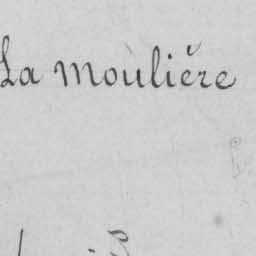 La moulière